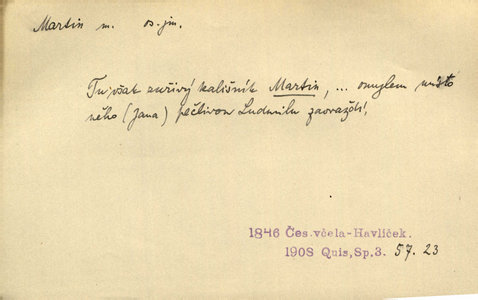 Martin m. os. jm.
Tu však zuřivý kališník Martin, ... omylem místo
něho (Jana) pečlivou Ludmilu zavraždí,
1846 Čes. včela-Havlíček.
1908 Quis, Sp. 3. 57. 23